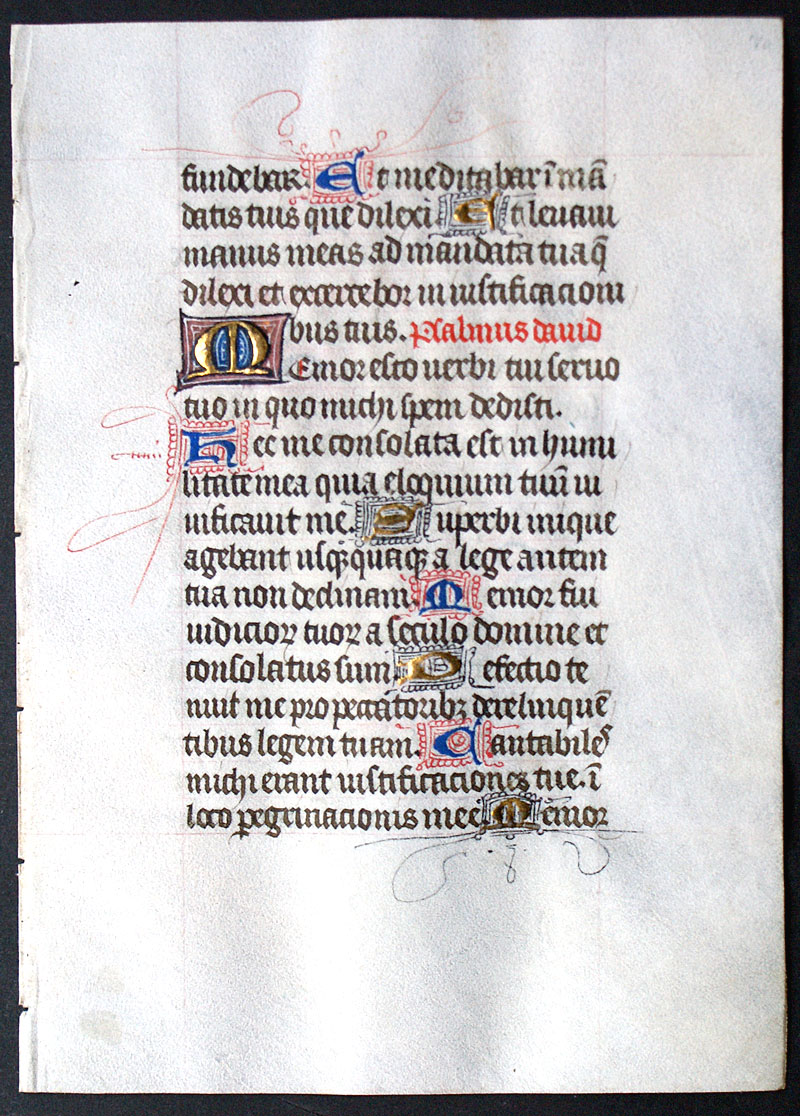 fundebar. Et meditabar ī mā
datis tuis que dilexi Et leuaui
manus meas ad mandata tua q̄
dilexi et excercebor in iustificacioni
bus tuis. Psalmus dauid
Memor esto uerbi tui seruo
tuo in quo michi spem dedisti.
Hec me consolata est in humi
litate mea quia eloquium tuū ui
uificauit me. Superbi inique
agebant usqꝫ quaqꝫ a lege autem
tua non declinaui. Memor fui
iudicioꝝ tuoꝝ a seculo domine et
consolatus sum Defectio te
nuit me pro peccatoribꝫ derelinquē
tibus legem tuam. Cantabiles
michi erant iustificaciones tue. ī
loco ꝑegrinacionis mee Memor